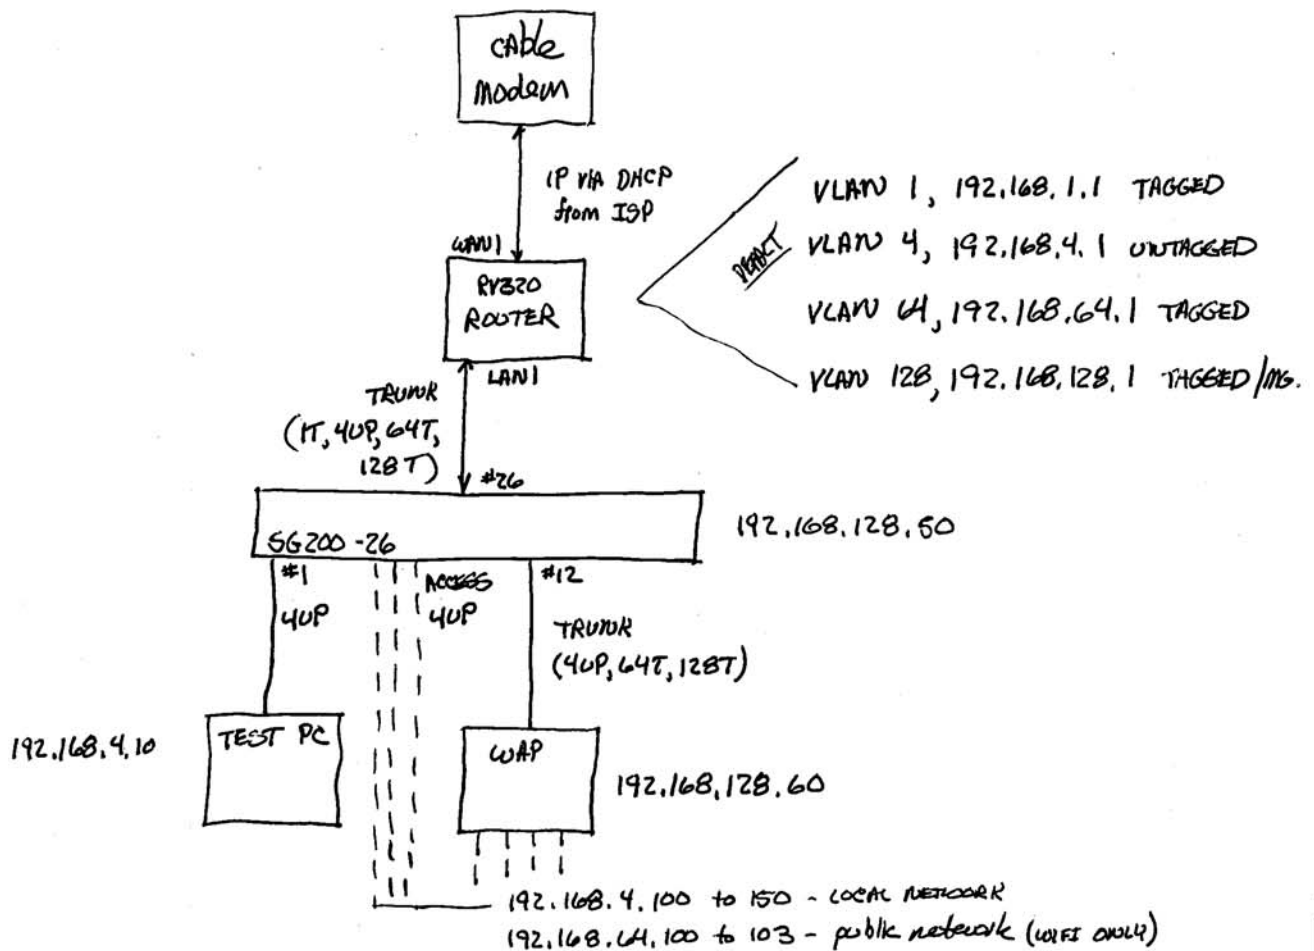 CAble
Modem
IP VIA DHCP
from ISP
WAN1
RV320
ROUTER
LAN1
VLAN 1, 192.168.1.1 TAGGED
VLAN 4, 192.168.4.1 UNTAGGED
VLAN 64, 192.168.64.1 TAGGED
VLAN 128, 192.168.128.1 TAGGED/MG.
TRUNK
(1T, 4UP, 64T,
128T)
#26
SG200-26
192.168.128.50
#1
4UP
ACCESS
4UP
#12
TRUNK
(4UP, 64T, 128T)
TEST PC
192.168.4.10
WAP
192.168.128.60
192.168.4.100 to 150 - LOCAL NETWORK
192.168.64.100 to 103 - public network (WIFI ONLY)